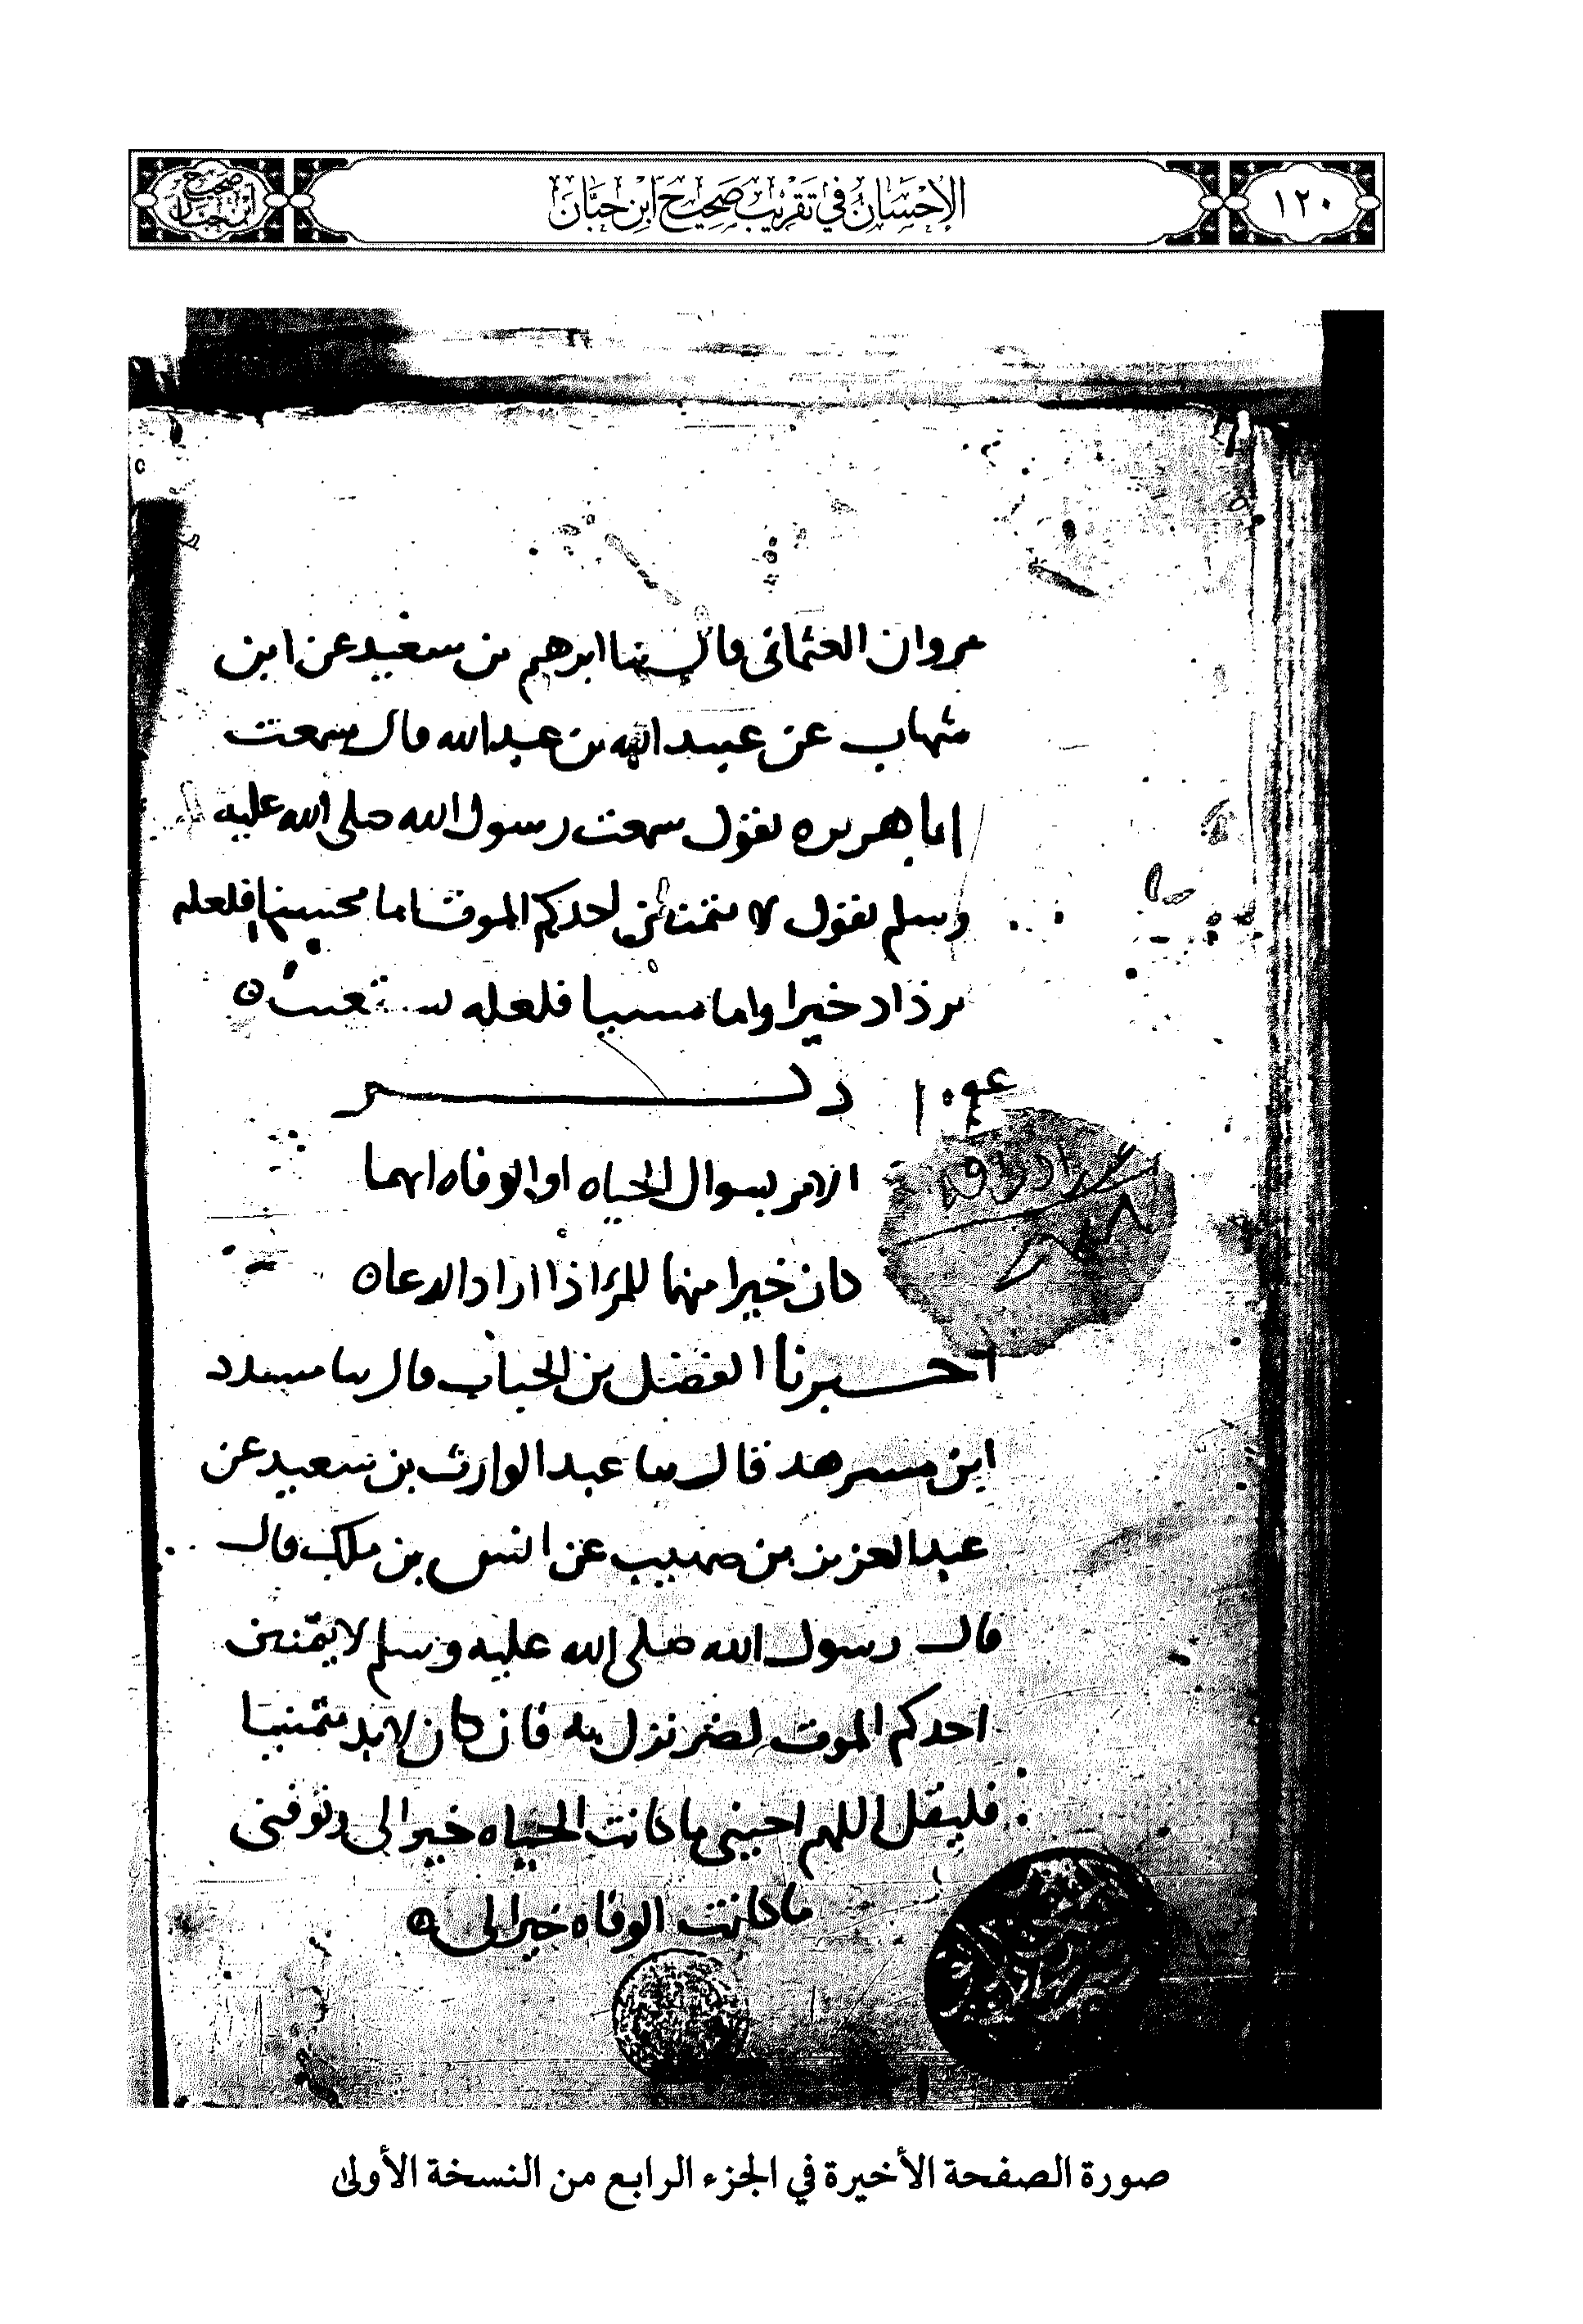 ١٢٠
الإحسان في تقريب صحيح ابن حبان
صحيح ابن حبان
مروان العثماني قال ثنا ابرهيم بن سعيد عن ابن
شهاب عن عبيد الله بن عبدالله قال سمعت
ابا هريره يقول سمعت رسول الله صلى الله عليه
وسلم يقول لا يتمنين احدكم الموت اما محسنا فلعله
يزداد خيرا واما مسيا فلعله يستعتب
ذكر
الامر بسوال الحياه او الوفاه ايهما
كان خيرا منهما للمرء اذا اراد الدعاه
اخبرنا الفضل بن الحباب قال ثنا مسدد
ابن مسرهد قال ثنا عبد الوارث بن سعيد عن
عبد العزيز بن صهيب عن انس بن ملك قال
قال رسول الله صلى الله عليه وسلم لا يتمنين
احدكم الموت لضر نزل به فان كان لابد متمنيا
فليقل اللهم احيني ما كانت الحياه خيرا لي وتوفني
ما كانت الوفاه خيرا لي
صورة الصفحة الأخيرة في الجزء الرابع من النسخة الأولى